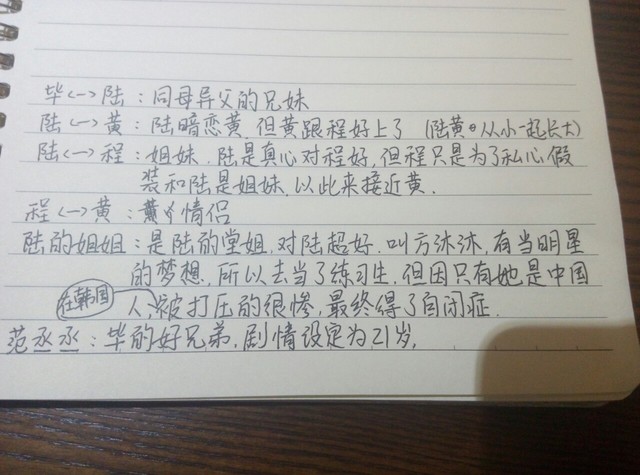 毕<一>陆：同母异父的兄妹
陆<一>黄：陆暗恋黄，但黄跟程好上了（陆黄从小一起长大）
陆<一>程：姐妹，陆是真心对程好，但程只是为了私心假
装和陆是姐妹，以此来接近黄。
程<一>黄：情侣
陆的姐姐：是陆的堂姐，对陆超好，叫方沐沐，有当明星
的梦想，所以去当了练习生，但因只有她是中国
在韩国
人，被打压的很惨，最终得了自闭症。
范丞丞：毕的好兄弟，剧情设定为21岁，